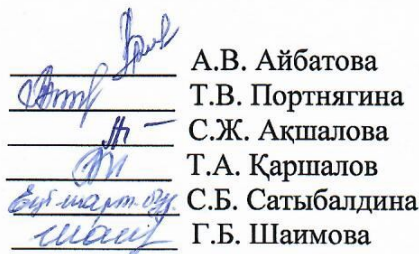 А.В. Айбатова
Т.В. Портнягина
С.Ж. Ақшалова
Т.А. Қаршалов
С.Б. Сатыбалдина
Г.Б. Шаимова